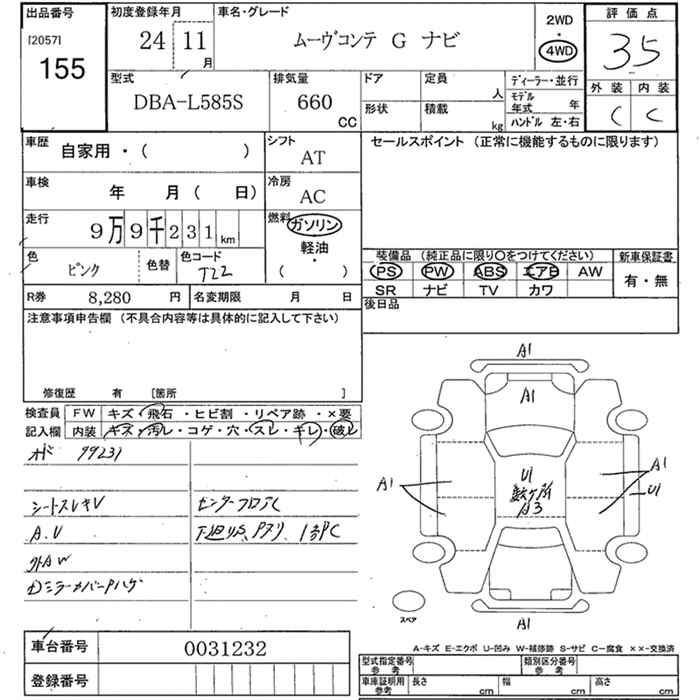 出品番号
[2057]
155
初度登録年月
24 11 月
車名・グレード
ムーヴコンテ G ナビ
2WD
・
4WD
評価点
3.5
外装 内装
C C
型式
DBA-L585S
排気量
660 CC
ドア
形状
定員 人
積載 kg
ディーラー・並行
モデル年式 年
ハンドル 左・右
車歴
自家用・( )
シフト
AT
車検
年 月 ( 日)
冷房
AC
走行
9万9千231 km
燃料
ガソリン
軽油
・
( )
色
ピンク
色替
色コード
T22
R券 8,280 円
名変期限 月 日
セールスポイント (正常に機能するものに限ります)
装備品 (純正品に限り○をつけてください)
PS PW ABS エアB AW
SR ナビ TV カワ
新車保証書
有・無
後日品
注意事項申告欄 (不具合内容等は具体的に記入して下さい)
修復歴 有 [箇所 ]
検査員 FW キズ・飛石・ヒビ割・リペア跡・×要
記入欄 内装 キズ・汚レ・コゲ・穴・スレ・キレ・破レ
99231
シートスレキV
A.V
外AW
センターフロアC
A1
A1
U1
数ヶ所
A3
A1
A1
U1
A1
スペア
A-キズ E-エクボ U-凹み W-補修跡 S-サビ C-腐食 ××-交換済
車台番号 0031232
登録番号
型式指定番号 参考
類別区分番号 参考
車庫証明用 参考
長さ cm 幅 cm 高さ cm